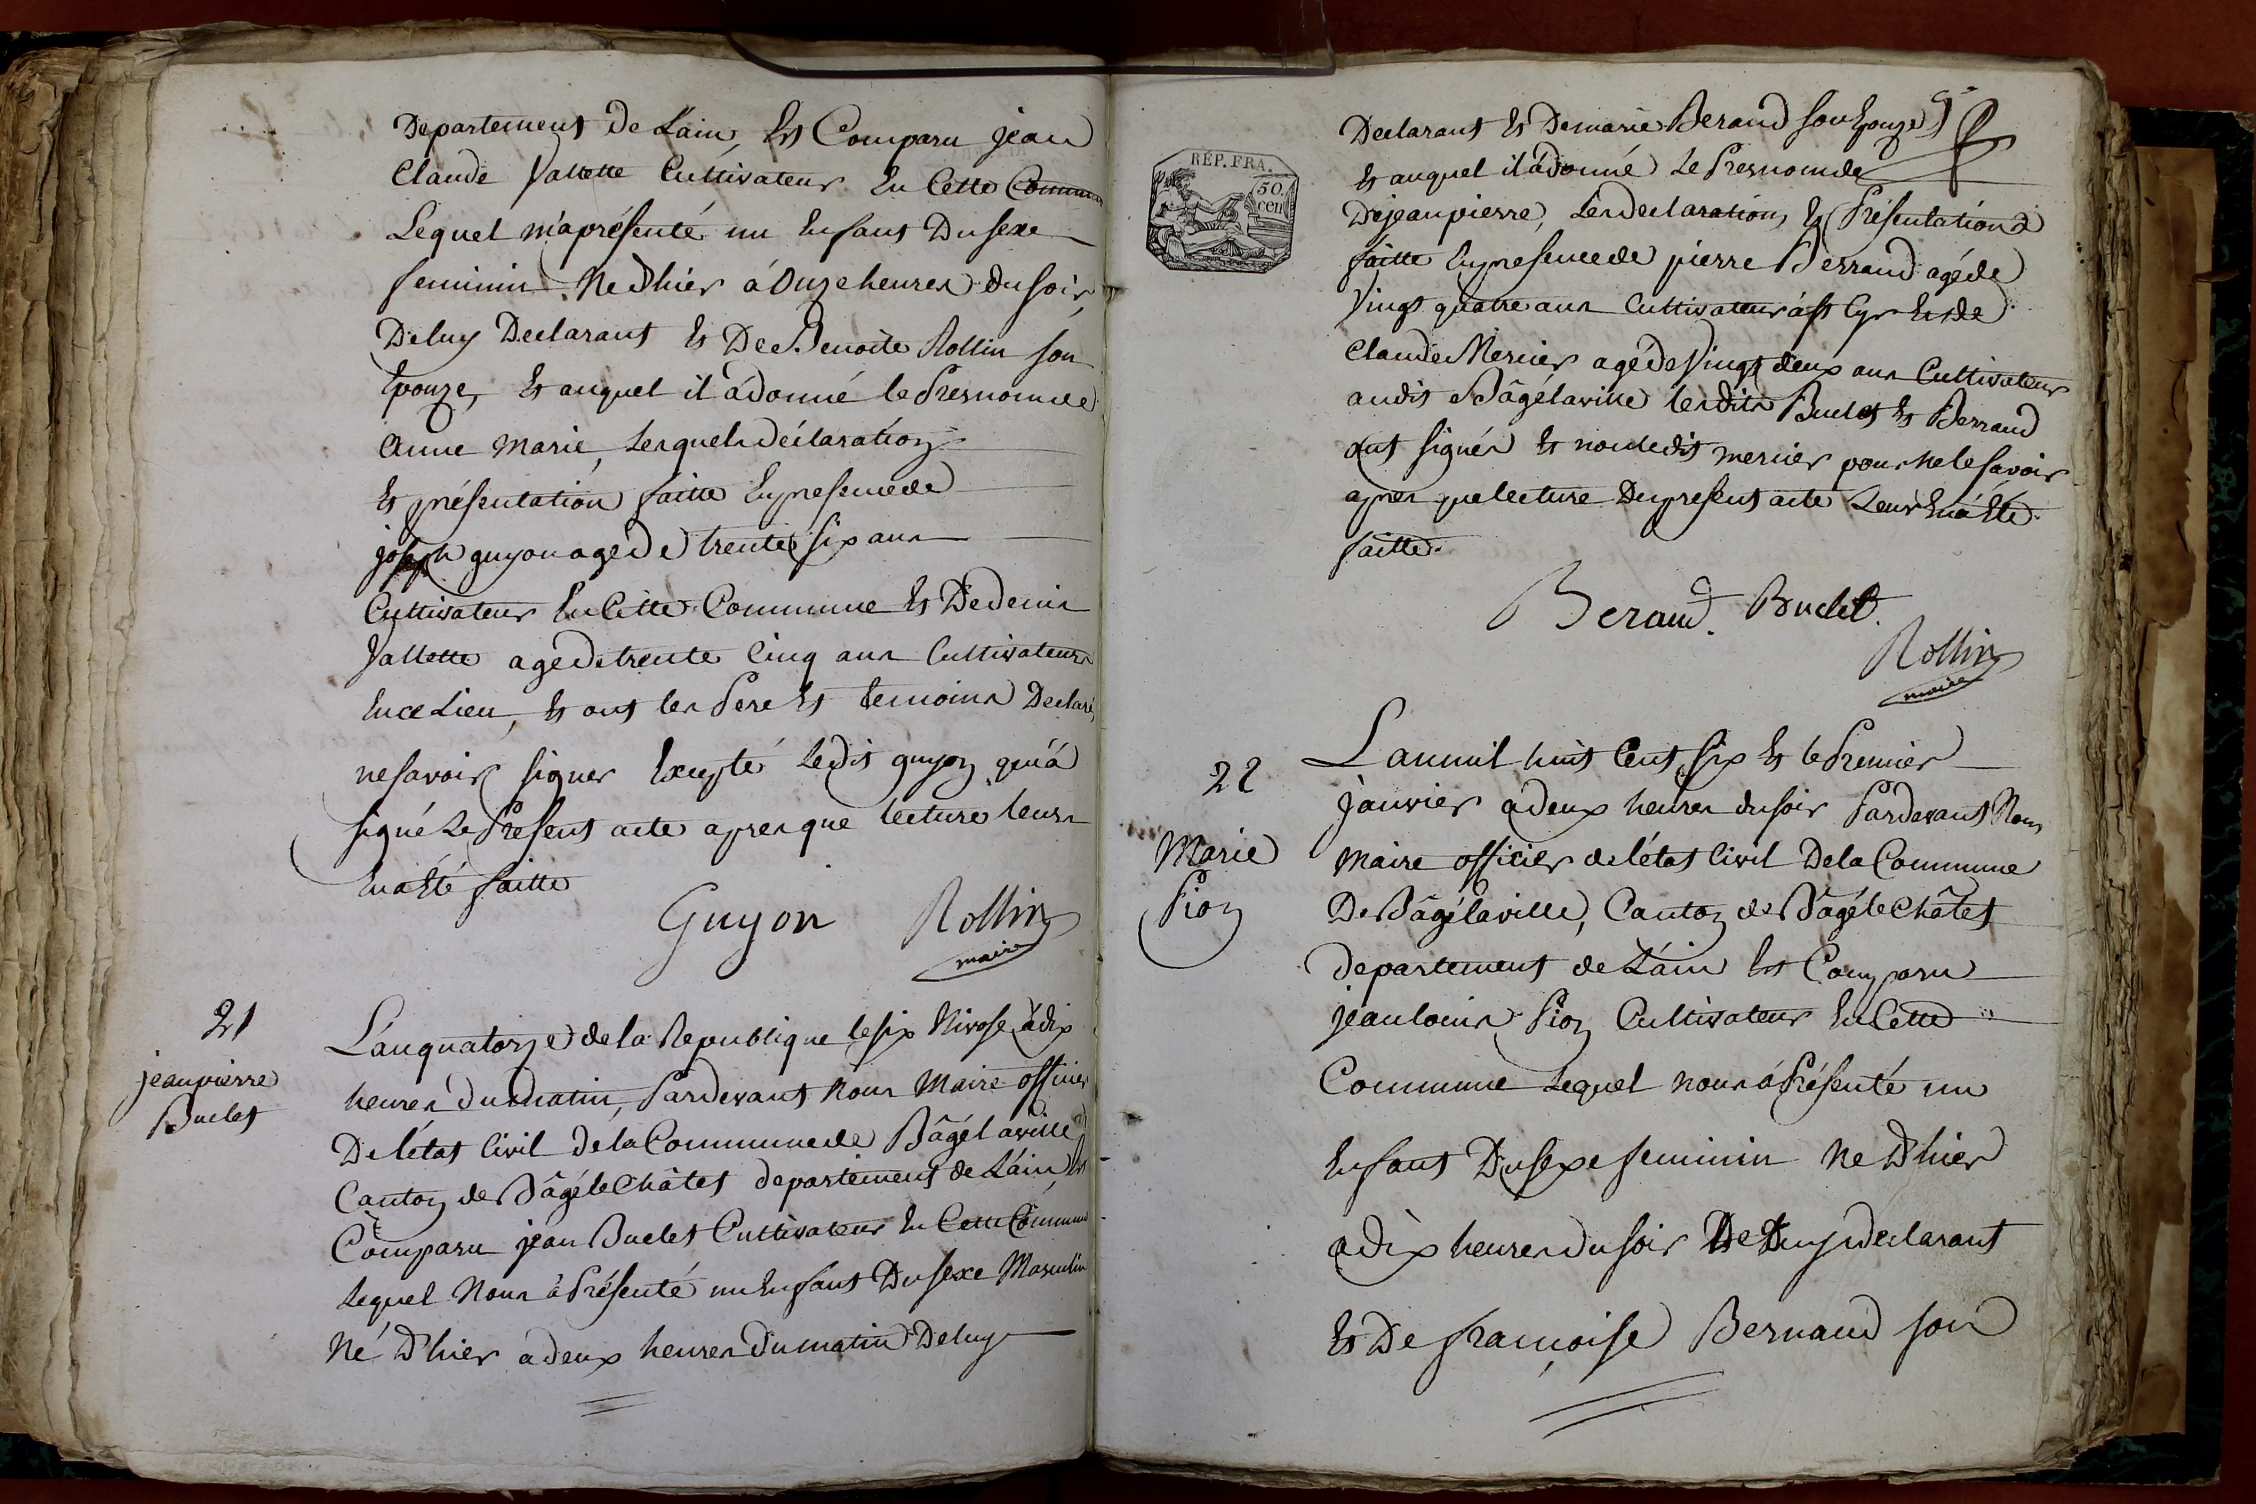 Departement de Lain, Est Comparu jean
Claude Vallette Cultivateur En Cette Commune
Lequel m'a présenté un Enfant Du sexe
feminin Né D'hier á Onze heures du soir,
De luy Declarant Et De Benoite Rollin son
Epouze, Et auquel il á donné le Presnom de
Anne Marie, Lesquels déclaration
Et présentation faitte En presence de
joseph guyon agé de trente six ans
Cultivateur En Cette Commune Et De denis
Vallette agé de trente Cinq ans Cultivateurs
En ce Lieu, Et ont les Pere Et temoins Declaré
ne savoir signer Excepté Ledit guyon qui a
signé Le Present acte apres que lecture leurs
En a Eté faitte
Guyon Rollin
maire
21
jean pierre
Buclet
L'an quatorze de la Republique le six Nivose à dix
heures du matin, Pardevant Nous Maire officier
De l'état Civil de la Commune de Bâgé la ville
Canton de Bâgé le Châtel departement de L'ain, Est
Comparu jean Buclet Cultivateur En Cette Commune
Lequel Nous à Présenté un Enfant Du sexe Masculin
Né D'hier a deux heures Du matin De luy
RÉP. FRA.
50
cen
Declarant Et De marie Beraud son Epouze
Et auquel il á donné Le Presnom de
De jean pierre, Les declaration Et Présentation
faitte En presence de pierre Berraud agé de
Vingt quatre ans Cultivateur á St Cyr Et de
Claude Mercier agé de Vingt deux ans Cultivateur
audit Bâgé la ville lesdits Buclet Et Berraud
ont signés Et non ledit mercier pour ne le savoir
apres que lecture Du present acte Leur En á Eté
faitte.
Beraud. Buclet.
Rollin
maire
22
Marie
Pion
L'an mil huit Cent six Et le Premier
janvier á deux heures du soir Pardevant Nous
Maire officier de l'état Civil De la Commune
De Bâgé la ville, Canton de Bâgé le Châtel
departement de L'ain Est Comparu
jean louis Pion Cultivateur En Cette
Commune Lequel nous á Présenté un
Enfant Du sexe feminin Né D'hier
a dix heures du soir De Luy declarant
Et De françoise Bernaud son